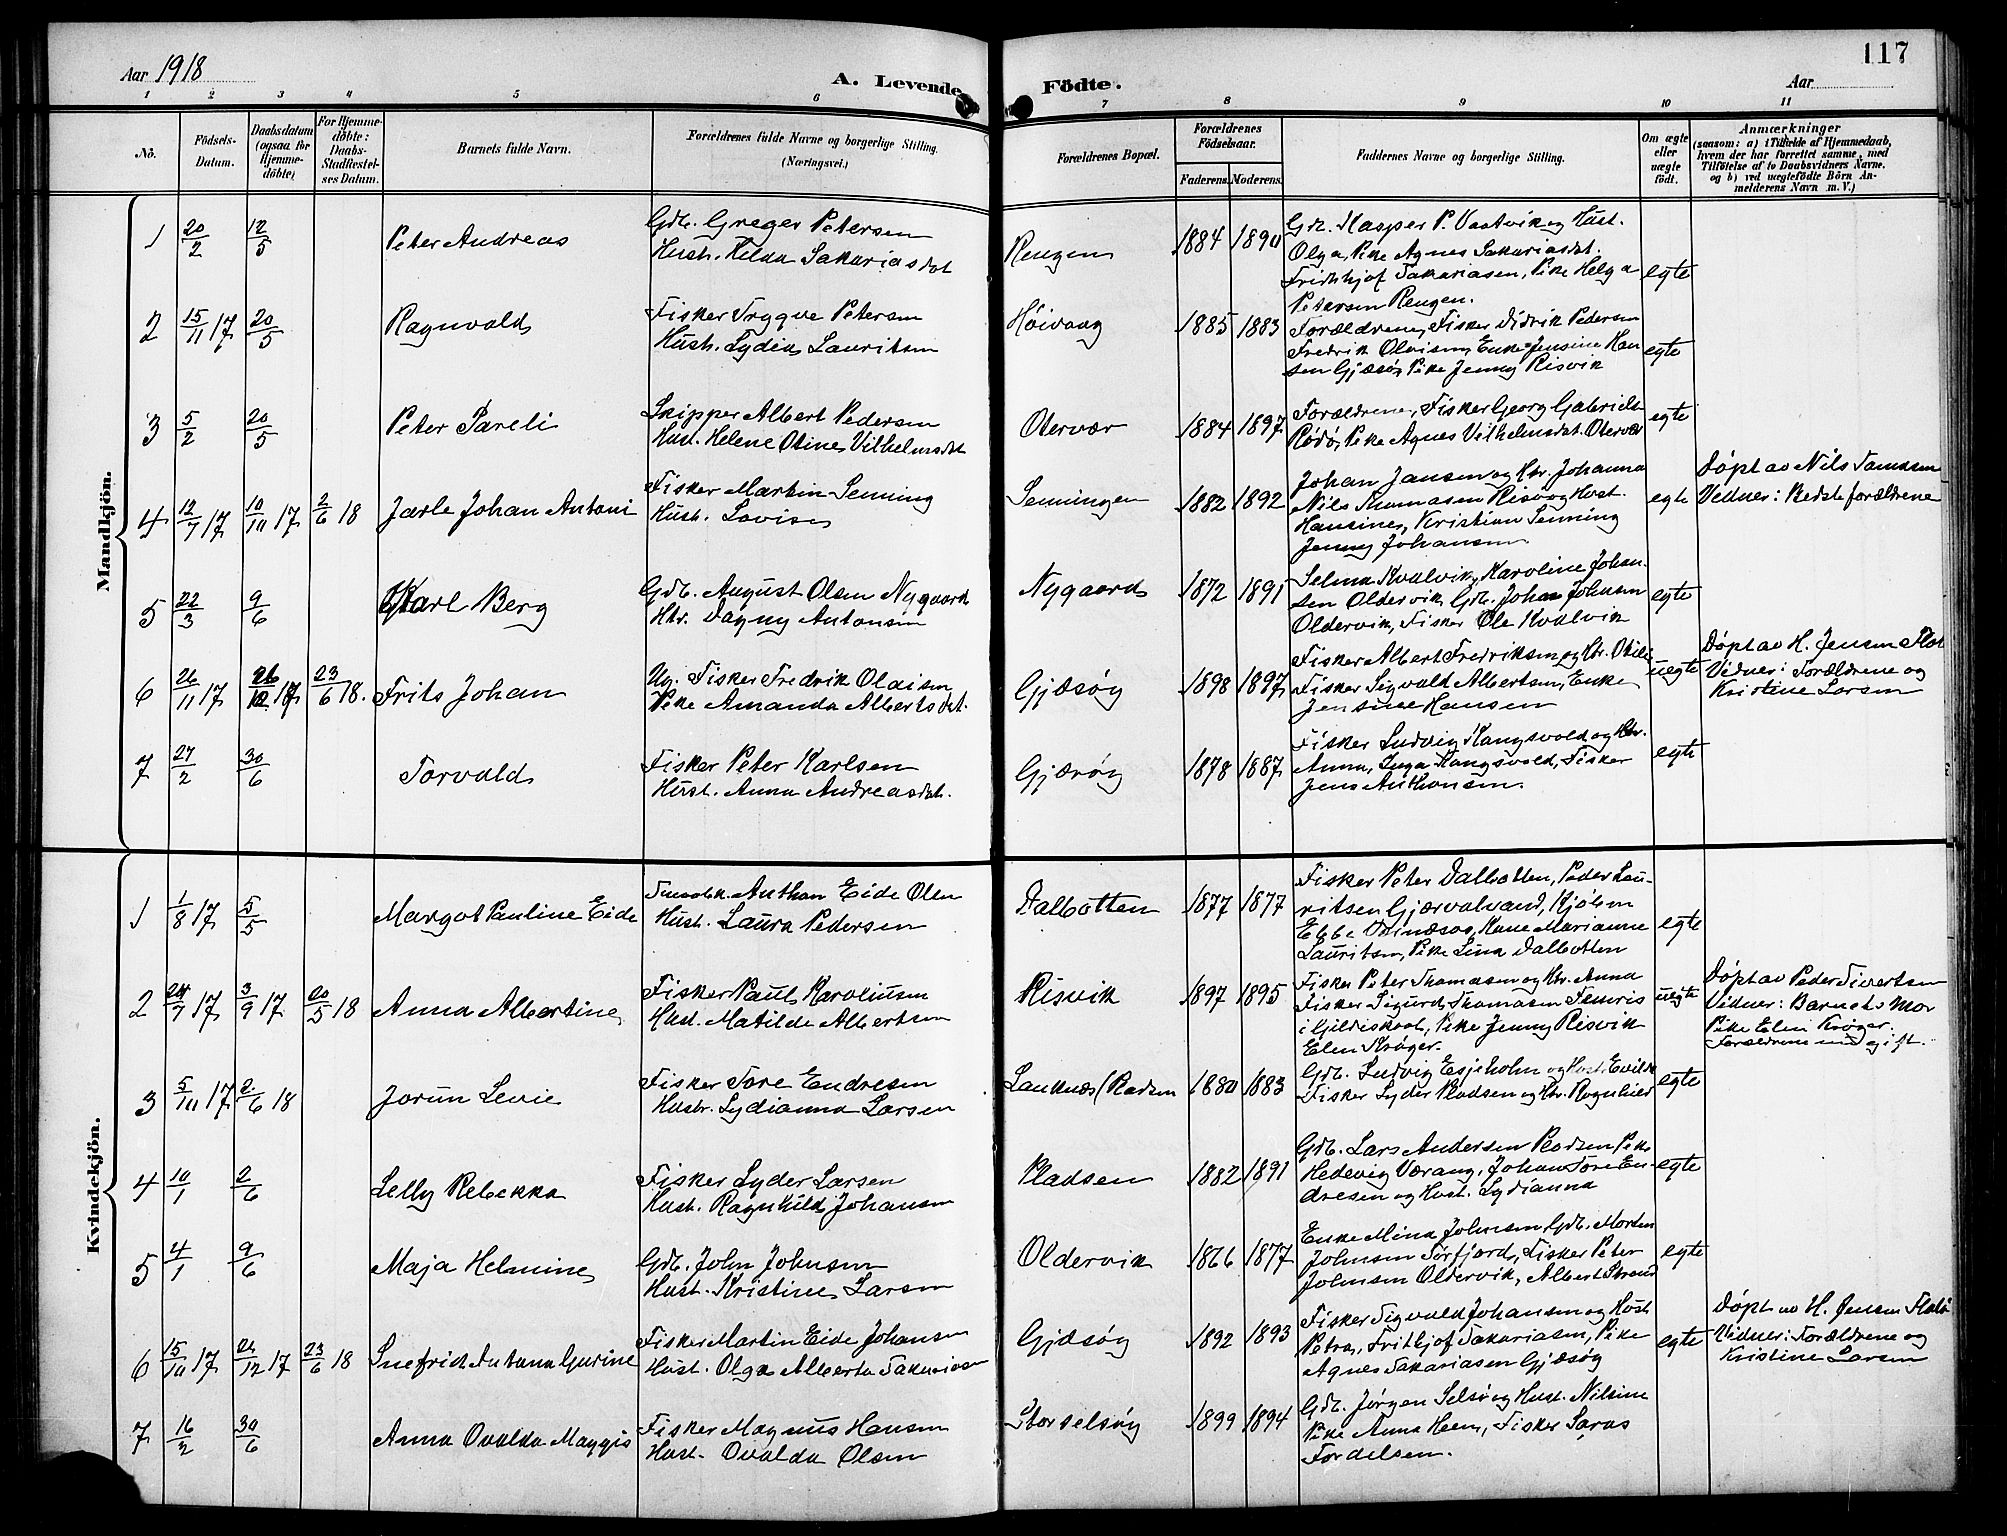 Aar 1918
A. Levende
Födte.
117
Aar
1 2 3 4 5 6 7 8 9 10 11
No.
Födsels-
Datum.
Daabsdatum
(ogsaa for
Hjemme-
döbte)
For Hjemme-
döbte:
Daabs-
Stadfæstel-
ses Datum.
Barnets fulde Navn.
Forældrenes fulde Navne og borgerlige Stilling.
(Næringsvei.)
Forældrenes Bopæl.
Forældrenes
Födselsaar.
Faderens. Moderens.
Faddernes Navne og borgerlige Stilling.
Om ægte
eller
uægte
födt.
Anmærkninger
(saasom: a) i Tilfælde af Hjemmedaab,
hvem der har forrettet samme, med
Tilföielse af to Daabsvidners Navne.
og b) ved uægtefödte Börn An-
melderens Navn m. V.)
Mandkjön.
1 20/2 12/5 Peter Andreas
Gdb. Greger Petersen
Hust. Hilda Sakariasdat
Rengen 1884 1890
Gdb. Kasper P. Vaatvik og Hust.
Olga, Pike Agnes Sakariasdat.
Fridthjof Sakariasen, Pike Helga
Petersen Rengen.
egte
2 15/11 17 20/5 Ragnvald
Fisker Trygve Petersen
Hust. Lydia Lauritsen
Høivaag 1885 1883
Forældrene, Fisker Didrik Pedersen
Fredrik Olaisen, Enke Jensine Han
sen Gjæsøy, Pike Jenny Risvik
egte
3 5/2 20/5 Peter Pareli
Skipper Albert Pedersen
Hust. Helene Otine Vilhelmsdat
Otervær 1884 1897
Forældrene, Fisker Georg Gabrielsen
Rødø, Pike Agnes Vilhelmsdat. Otervær
egte
4 12/7 17 10/10 17 2/6 18 Jarle Johan Antoni
Fisker Martin Senning
Hust. Lovise
Senningen 1882 1892
Johan Jansen og Htr. Johanna
Nils Thomasen Risvog Host.
Hansine, Kristian Senning
Jenny Johansen
egte
Døpt av Nils Tomassen
Vidner: Bedsteforældrene
5 22/3 9/6 Karl Berg
Gdb. August Olsen Nygaard
Htr. Dagny Antonsen
Nygaard 1872 1891
Selma Kvalvik, Karoline Johan
sen Oldervik, Gdb. Johan Johnsen
Oldervik, Fisker Ole Kvalvik
egte
6 26/11 17 26/12 17 23/6 18. Frits Johan
Ug. Fisker Fredrik Olaisen
Pike Amanda Albertsdat.
Gjæsøy 1898 1897
Fisker Albert Fredriksen og Htr. Otilie
Fisker Sigvald Albertsen, Enke
Jensine Hansen
uegte
Døpt av H. Jensen Flatø
Vidner: Forældrene og
Kristine Larsen
7 27/2 30/6 Torvald
Fisker Peter Karlsen
Hust. Anna Andreasdat.
Gjærøy 1878 1887
Fisker Ludvig Kangsvold og Htr.
Anna, Inga Kangsvold, Fisker
Jens Anthonsen.
egte
Kvindekjön.
1 1/8 17 5/5 Margot Pauline Eide
Anthon Eide Olsen
Hust. Laura Pedersen
Dalbotten 1877 1877
Fisker Peter Dalbotten, Peder Lau-
ritsen Gjærvalvand, Kjøbm
Ebbe Kone Marianne
Lauritsen, Pike Lina Dalbotten
egte
2 24/7 17 3/9 17 20/5 18 Anna Albertine
Fisker Paul Karoliusen
Hust. Matilde Albertsen
Risvik 1897 1895
Fisker Peter Thomasen og Htr. Anna
Fisker Sigurd Thomasen Femris
i Gildeskaal, Pike Jenny Risvik
Elen Krøger.
uegte
Døpt av Peder Sivertsen
Vidner: Barnets Mor
Pike Elen Krøger.
Forældrene nu gift.
3 5/10 17 2/6 18 Jorun Levie
Fisker Tore Endresen
Hustr. Lydianna Larsen
Lauknæs (Pladsen 1880 1883
Gdb. Ludvig Esjeholm og Host. Evilde
Fisker Lyder Pladsen og Htr. Ragnhild
egte
4 10/1 2/6 Lelly Rebekka
Fisker Lyder Larsen
Hust. Ragnhild Johansen
Pladsen 1882 1891
Gdb. Lars Andersen Pladsen, Pike
Hedevig Værang, Johan Tore En-
dresen og Host. Lydianna
egte
5 4/1 9/6 Maja Helmine
Gdb. John Johnsen
Hust. Kristine Larsen
Oldervik 1866 1877
Enke Mina Johnsen, Gdb. Morten
Johnsen Sørfjord, Fisker Peter
Johnsen Oldervik, Albert Strand
egte
6 15/10 17 26/12 17 23/6 18 Snefrid Antona Gurine
Fisker Martin Eide Johansen
Hust. Olga Alberta Sakariasen
Gjæsøy 1892 1893
Fisker Sigvald Johansen og Host
Petra, Frithjof Sakariasen, Pike
Agnes Sakariasen Gjæsøy
egte
Døpt av H. Jensen Flatø
Vidner: Forældrene og
Kristine Larsen
7 16/2 30/6 Anna Ovalda Maggie
Fisker Magnus Hansen
Hust. Ovalda Olsen
Storselsøy 1899 1894
Gdb. Jørgen Selsø og Hust. Nilsine
Pike Anna Heen, Fisker Saras
Fordelsen.